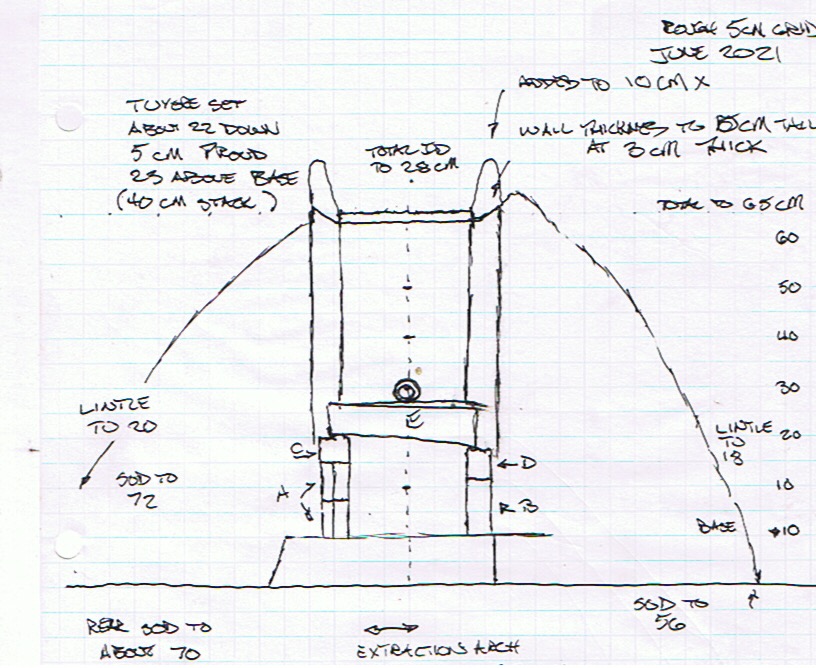 ROUGH 5CM GRID
JUNE 2021
ADDED TO 10 CM X
TUYERE SET
ABOUT 22 DOWN
5 CM PROUD
23 ABOVE BASE
(40 CM STACK)
TOTAL ID
TO 28 CM
WALL THICKNESS TO CM TALL
AT 3 CM THICK
TOTAL TO 65 CM
60
50
40
30
20
10
10
LINTLE
TO 20
SOD TO
72
LINTLE
TO
18
BASE
E
C
D
A
B
SOD TO
56
REAR SOD TO
ABOUT 70
EXTRACTIONS ARCH